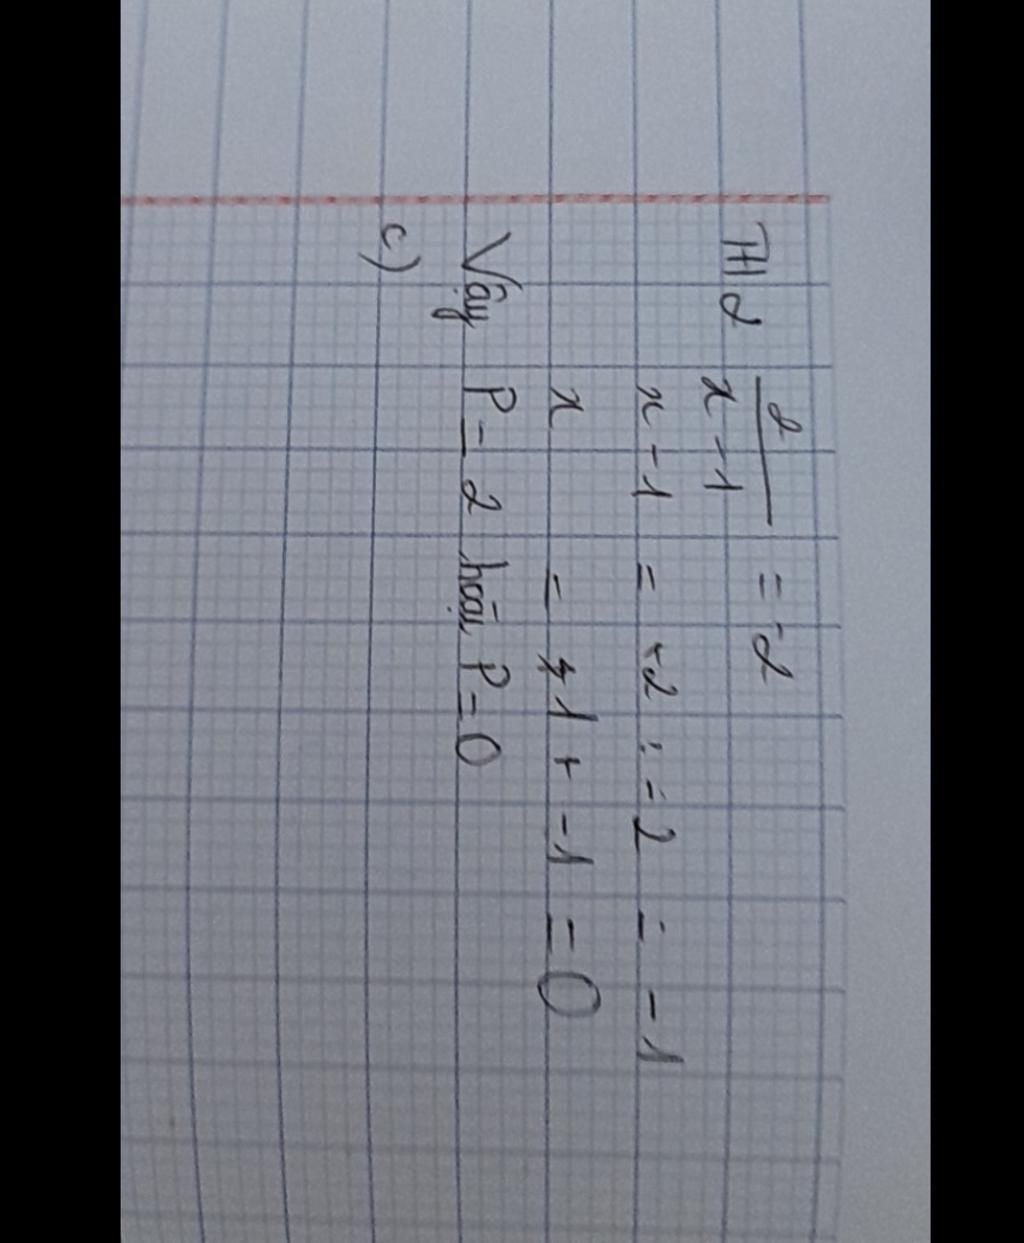 TH2 2/(x-1) = -2
x-1 = +2 : -2 = -1
x = 1 + -1 = 0
Vậy P=2 hoặc P=0
c)